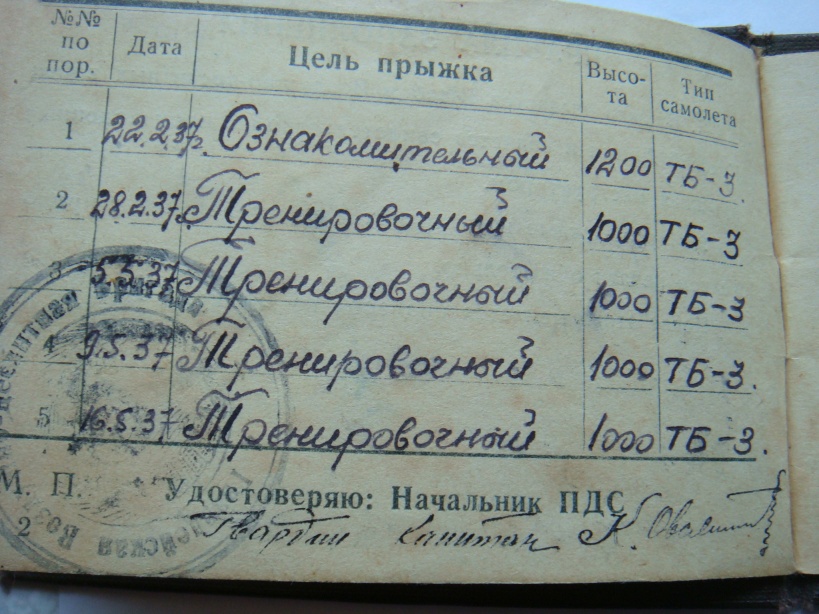 №№ по пор. Дата Цель прыжка Высо-та Тип самолета
1 22.2.37г. Ознакомительный 1200 ТБ-3.
2 28.2.37г. Тренировочный 1000 ТБ-3
3 5.5.37г. Тренировочный 1000 ТБ-3
4 9.5.37 Тренировочный 1000 ТБ-3.
5 16.5.37 Тренировочный 1000 ТБ-3.
М. П. Удостоверяю: Начальник ПДС
2 Гвардии капитан К.
десантная бригада